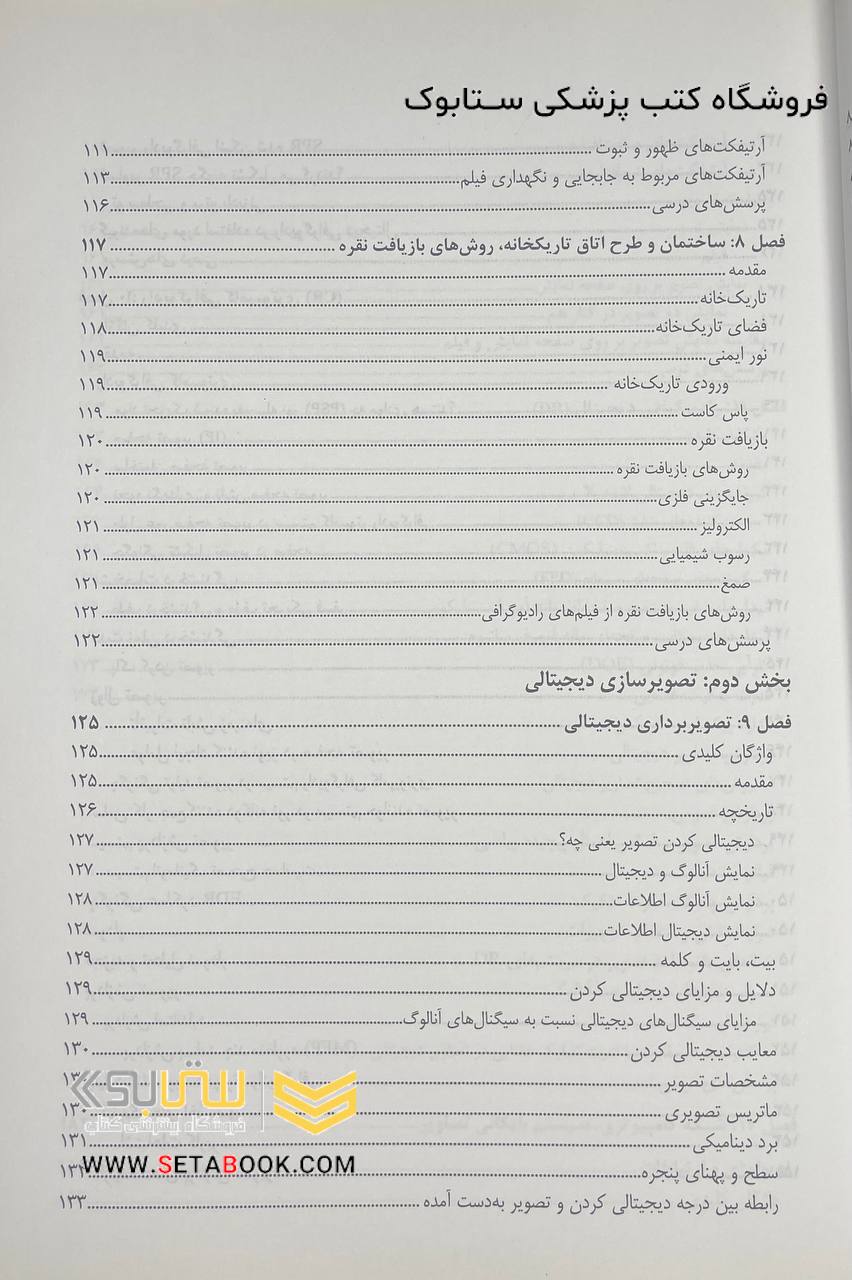 فروشگاه کتب پزشکی ستابوک
آرتیفکت‌های ظهور و ثبوت ۱۱۱
آرتیفکت‌های مربوط به جابجایی و نگهداری فیلم ۱۱۳
پرسش‌های درسی ۱۱۶
فصل ۸: ساختمان و طرح اتاق تاریکخانه، روش‌های بازیافت نقره ۱۱۷
مقدمه ۱۱۷
تاریک‌خانه ۱۱۷
فضای تاریک‌خانه ۱۱۸
نور ایمنی ۱۱۹
ورودی تاریک‌خانه ۱۱۹
پاس کاست ۱۱۹
بازیافت نقره ۱۲۰
روش‌های بازیافت نقره ۱۲۰
جایگزینی فلزی ۱۲۰
الکترولیز ۱۲۱
رسوب شیمیایی ۱۲۱
صمغ ۱۲۱
روش‌های بازیافت نقره از فیلم‌های رادیوگرافی ۱۲۲
پرسش‌های درسی ۱۲۲
بخش دوم: تصویرسازی دیجیتالی
فصل ۹: تصویربرداری دیجیتالی ۱۲۵
واژگان کلیدی ۱۲۵
مقدمه ۱۲۵
تاریخچه ۱۲۶
دیجیتالی کردن تصویر یعنی چه؟ ۱۲۷
نمایش آنالوگ و دیجیتال ۱۲۷
نمایش آنالوگ اطلاعات ۱۲۸
نمایش دیجیتال اطلاعات ۱۲۸
بیت، بایت و کلمه ۱۲۹
دلایل و مزایای دیجیتالی کردن ۱۲۹
مزایای سیگنال‌های دیجیتالی نسبت به سیگنال‌های آنالوگ ۱۲۹
معایب دیجیتالی کردن ۱۳۰
مشخصات تصویر
ماتریس تصویری ۱۳۰
برد دینامیکی ۱۳۱
سطح و پهنای پنجره ۱۳۲
رابطه بین درجه دیجیتالی کردن و تصویر به‌دست آمده ۱۳۳
ستابوک
فروشگاه اینترنتی کتاب
WWW.SETABOOK.COM